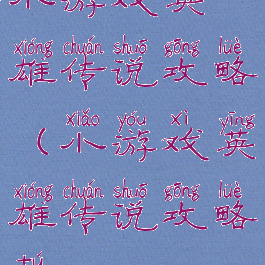 xióng chuán shuō gōng lüè
雄传说攻略
xiǎo yóu xì yīng
(小游戏英
xióng chuán shuō gōng lüè
雄传说攻略